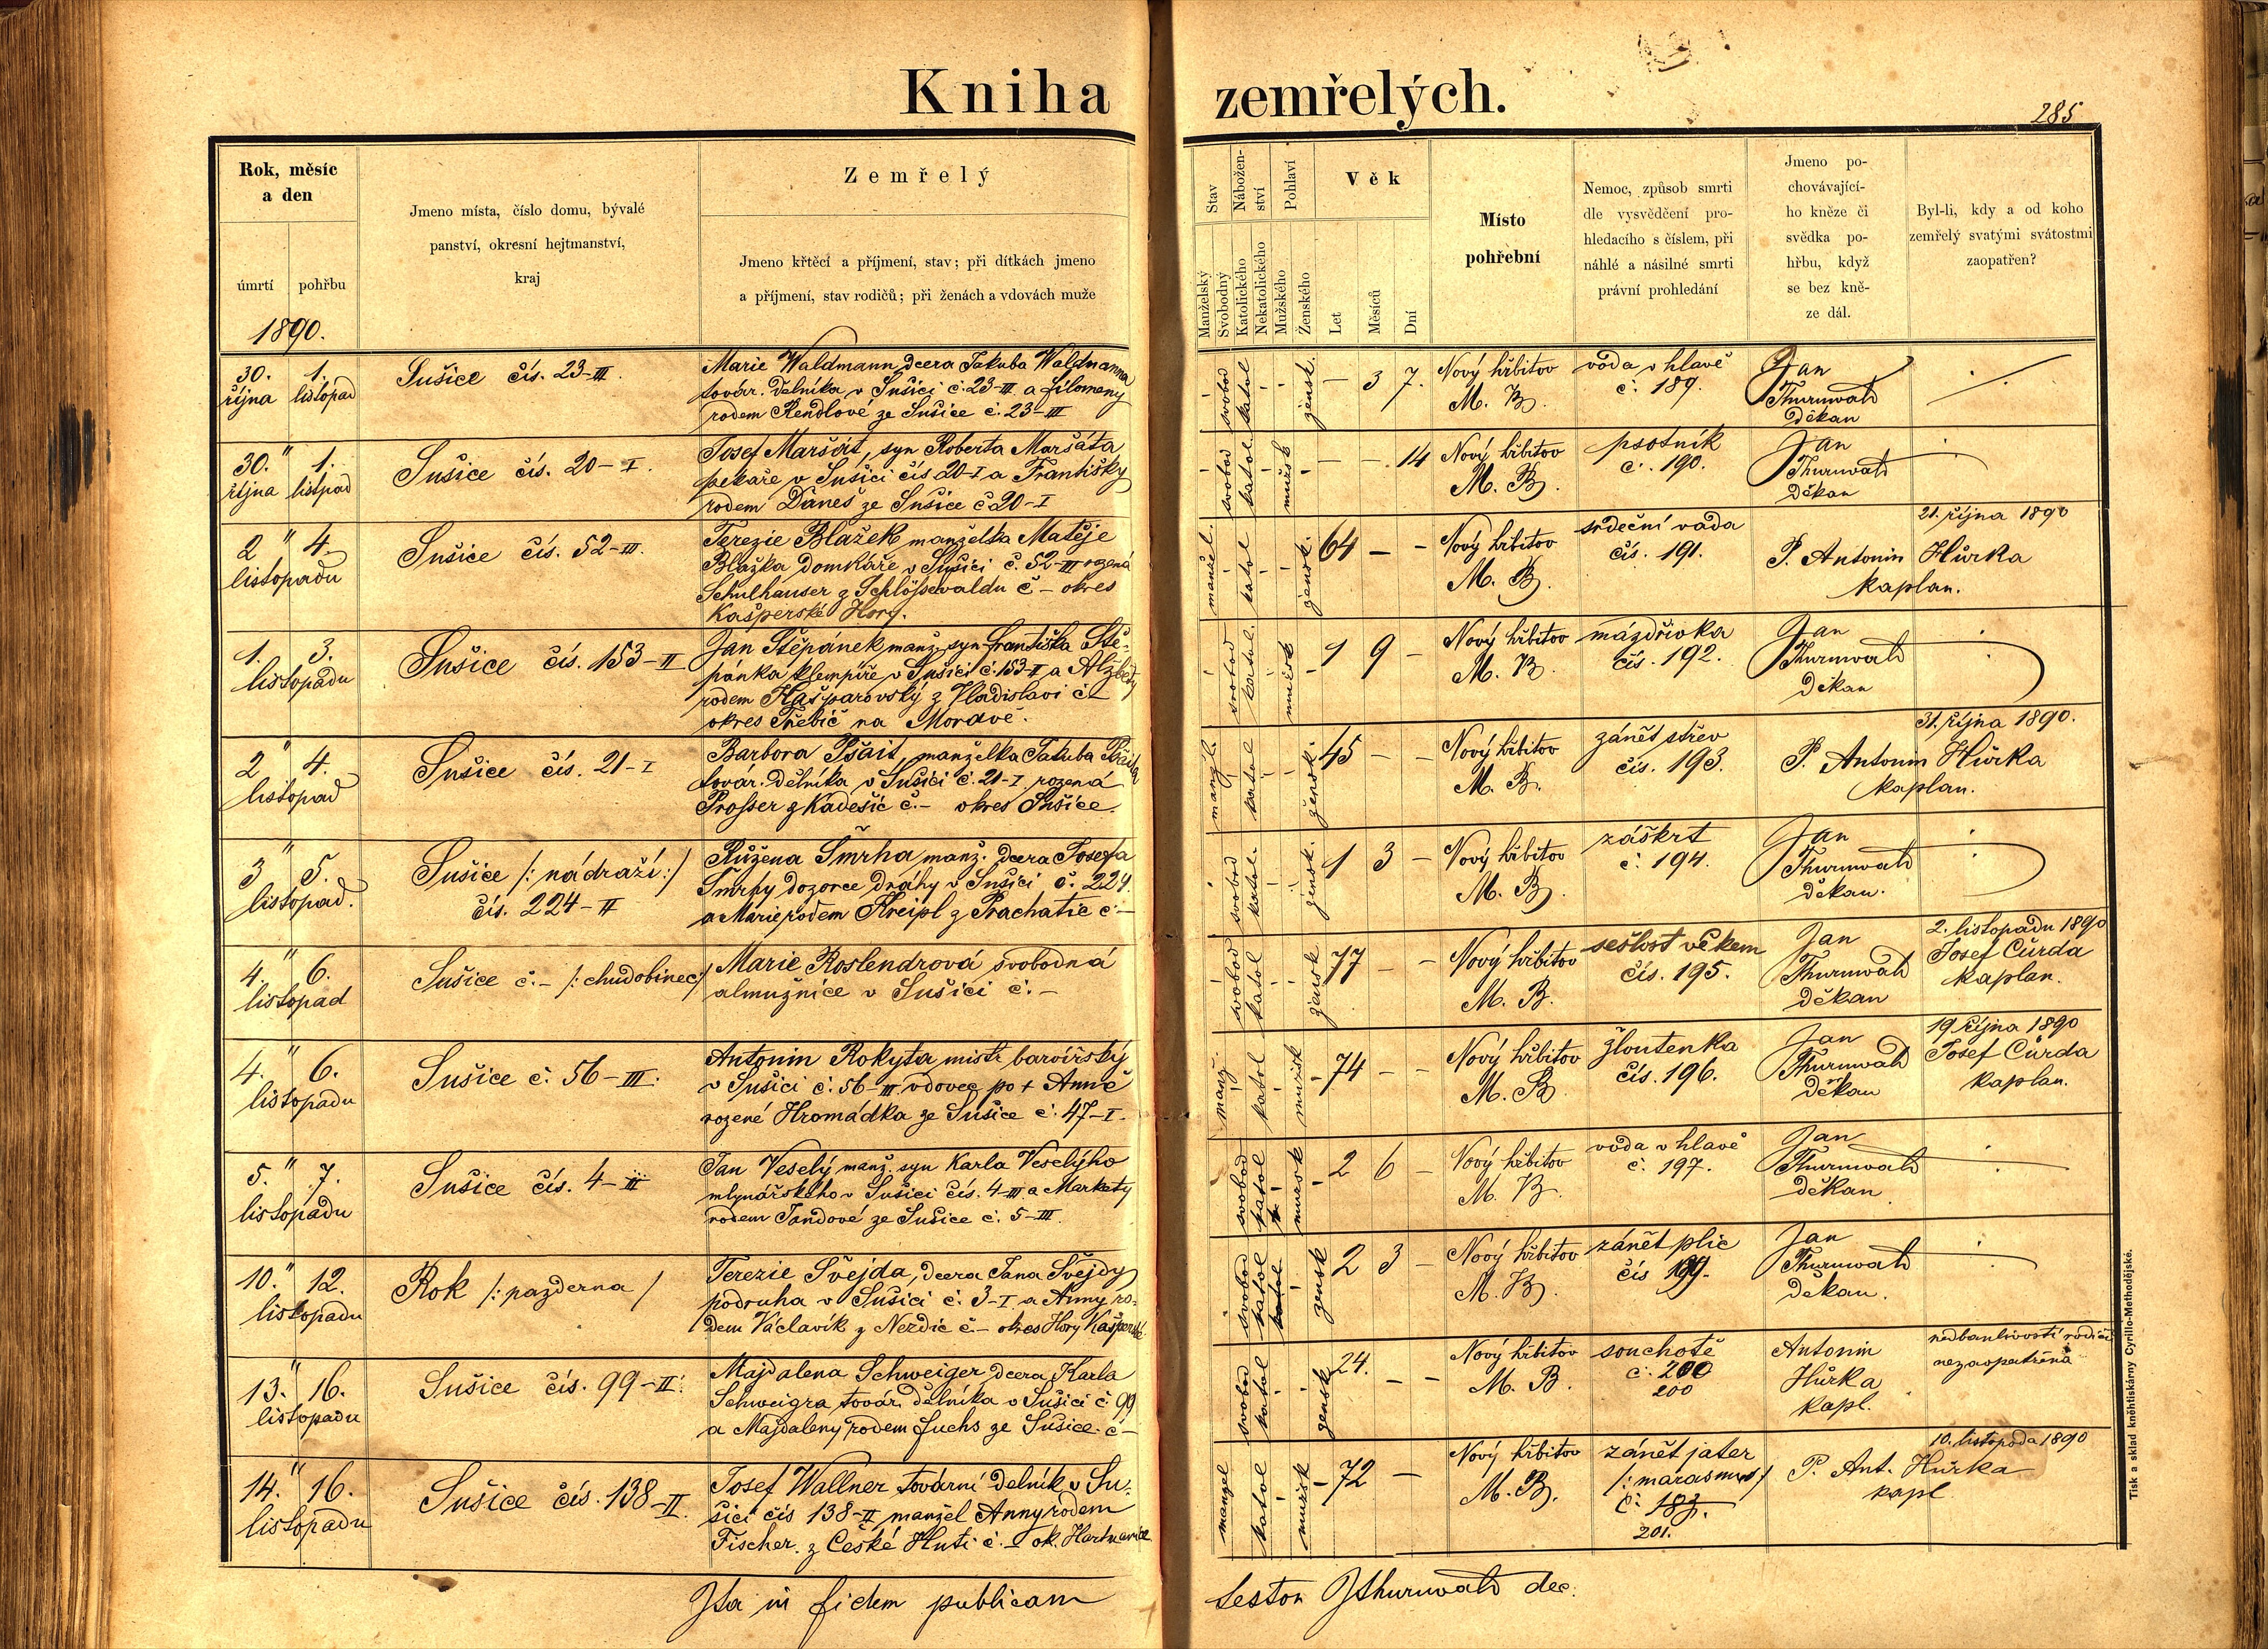 Kniha zemřelých.
285
Rok, měsíc
a den
úmrtí pohřbu
1890.
Jmeno místa, číslo domu, bývalé
panství, okresní hejtmanství,
kraj
Zemřelý
Jmeno křtěcí a příjmení, stav; při dítkách jmeno
a příjmení, stav rodičů; při ženách a vdovách muže
Stav
Manželský
Svobodný
Nábožen-
ství
Katolického
Nekatolického
Pohlaví
Mužského
Ženského
Věk
Let
Měsíců
Dní
Místo
pohřební
Nemoc, způsob smrti
dle vysvědčení pro-
hledacího s číslem, při
náhlé a násilné smrti
právní prohledání
Jmeno po-
chovávající-
ho kněze či
svědka po-
hřbu, když
se bez kně-
ze dál.
Byl-li, kdy a od koho
zemřelý svatými svátostmi
zaopatřen?
30. 1.
října listopad
Sušice čís. 23-III.
Marie Waldmann dcera Jakuba Waldmanna
továr. dělníka v Sušici č. 23-III a Filomeny
rodem Rendlové ze Sušice č. 23-III
svobod katol žensk. – 3 7.
Nový hřbitov
M. B.
voda v hlavě
č. 189.
Jan
Thurnwald
děkan
30. " 1.
října listopad
Sušice čís. 20-I.
Josef Maršát, syn Roberta Maršáta
pekaře v Sušici čís 20-I a Františky
rodem Daneš ze Sušice č 20-I
svobod katol mužsk – – 14
Nový hřbitov
M. B.
psotník
č. 190.
Jan
Thurnwald
děkan
2 " 4.
listopadu
Sušice čís. 52-III.
Terezie Blažek manželka Matěje
Blažka domkáře v Sušici č. 52-III rozená
Schulhauser z Schlösselwaldu č – okres
Kašperské Hory.
manžel. katol žensk. 64 – –
Nový hřbitov
M. B.
srdeční vada
čís. 191.
P. Antonin Hůrka
kaplan.
21. října 1890
1. 3.
listopadu
Sušice čís. 153-II
Jan Štěpánek manž. syn Františka Ště-
pánka klempíře v Sušici č. 153-II a Alžběty
rodem Kašparovský z Vladislavi č –
okres Třebíč na Moravě.
svobod katol. mužsk 1 9 –
Nový hřbitov
M. B.
mázdřivka
čís. 192.
Jan
Thurnwald
děkan
2 " 4.
listopad
Sušice čís. 21-I
Barbora Pšait, manželka Jakuba Pšaita
továr. dělníka v Sušici č. 21-I rozená
Prosser z Kadešic č. – okres Sušice.
manžl. katol žensk. 45 – –
Nový hřbitov
M. B.
zánět střev
čís. 193.
P. Antonin Hůrka
kaplan.
31. října 1890.
3 " 5.
listopad.
Sušice /: nádraží :/
čís. 224-II
Růžena Šmrha, manž. dcera Josefa
Šmrhy dozorce dráhy v Sušici č. 224.
a Marie rodem Kreipl z Prachatic č. –
svobod katol. žensk. 1 3 –
Nový hřbitov
M. B.
záškrt
č. 194.
Jan
Thurnwald
děkan.
4. " 6.
listopad
Sušice č. – /: chudobinec :/
Marie Roslendrová svobodná
almužnice v Sušici č. –
svobod katol žensk 77 – –
Nový hřbitov
M. B.
sešlost věkem
čís. 195.
Jan
Thurnwald
děkan
2. listopadu 1890
Josef Cůrda
kaplan.
4. " 6.
listopadu
Sušice č. 56-III.
Antonin Rokyta mistr barvířský
v Sušici č. 56-III vdovec po † Anně
rozené Hromádka ze Sušice č. 47-I.
manž. katol mužsk 74 – –
Nový hřbitov
M. B.
žloutenka
čís. 196.
Jan
Thurnwald
děkan
19 října 1890
Josef Cůrda
kaplan.
5. " 7.
listopadu
Sušice čís. 4-III
Jan Veselý manž. syn Karla Veselýho
mlynářského v Sušici čís. 4-III a Markety
rodem Jandové ze Sušice č. 5-III.
svobod katol mužsk 2 6 –
Nový hřbitov
M. B.
voda v hlavě
č. 197.
Jan
Thurnwald
děkan
10. " 12.
listopadu
Rok /: pazderna /
Terezie Švejda, dcera Jana Švejdy
podruha v Sušici č. 3-I a Anny ro-
dem Václavík z Nezdic č – okres Hory Kašperské
svobod katol katol žensk 2 3 –
Nový hřbitov
M. B.
zánět plic
čís 199.
Jan
Thurnwald
děkan.
13. " 16.
listopadu
Sušice čís. 99-II.
Majdalena Schweiger dcera Karla
Schweigra továr. dělníka v Sušici č 99
a Majdaleny rodem Fuchs ze Sušice. č –
svobod katol žensk 24. – –
Nový hřbitov
M. B.
souchotě
č. 200
200
Antonin
Hůrka
kapl.
nedbanlivostí rodičů
nezaopatřena
14. " 16.
listopadu
Sušice čís. 138-II.
Josef Wallner tovární dělník v Su-
šici čís 138-II manžel Anny rodem
Fischer z České Huti č. – ok. Hartmanice
manžel katol mužsk 72 –
Nový hřbitov
M. B.
zánět jater
/: marasmus /
č. 183.
201.
P. Ant. Hůrka
kapl
10. listopada 1890
Ita in fidem publicam testor JThurnwald dec.
Tisk a sklad kněhtiskárny Cyrillo-Methodějské.